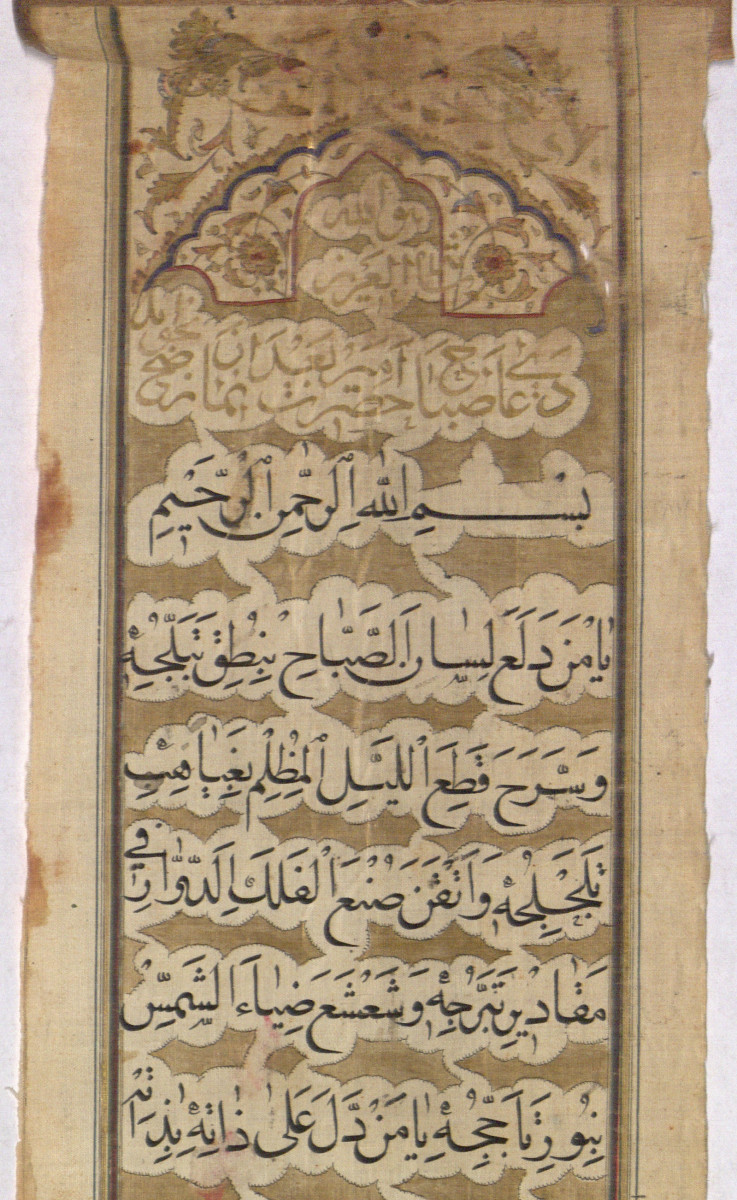 هو الله
العزيز
دعاى صباح حضرت امير بعد از نماز صبح
بِسْمِ اللهِ الرَّحْمٰنِ الرَّحِيْمِ
يٰا مَنْ دَلَعَ لِسٰانَ الصَّبٰاحِ بِنُطْقِ تَبَلُّجِهٖ
وَسَرَّحَ قِطَعَ اللَّيْلِ الْمُظْلِمِ بِغَيٰاهِبِ
تَلَجْلُجِهٖ وَاَتْقَنَ صُنْعَ الْفَلَكِ الدَّوّٰارِ فِي
مَقٰادِيْرِ تَبَرُّجِهٖ وَشَعْشَعَ ضِيٰاءَ الشَّمْسِ
بِنُوْرِ تَاَجُّجِهٖ يٰا مَنْ دَلَّ عَلىٰ ذٰاتِهٖ بِذٰاتِهٖ